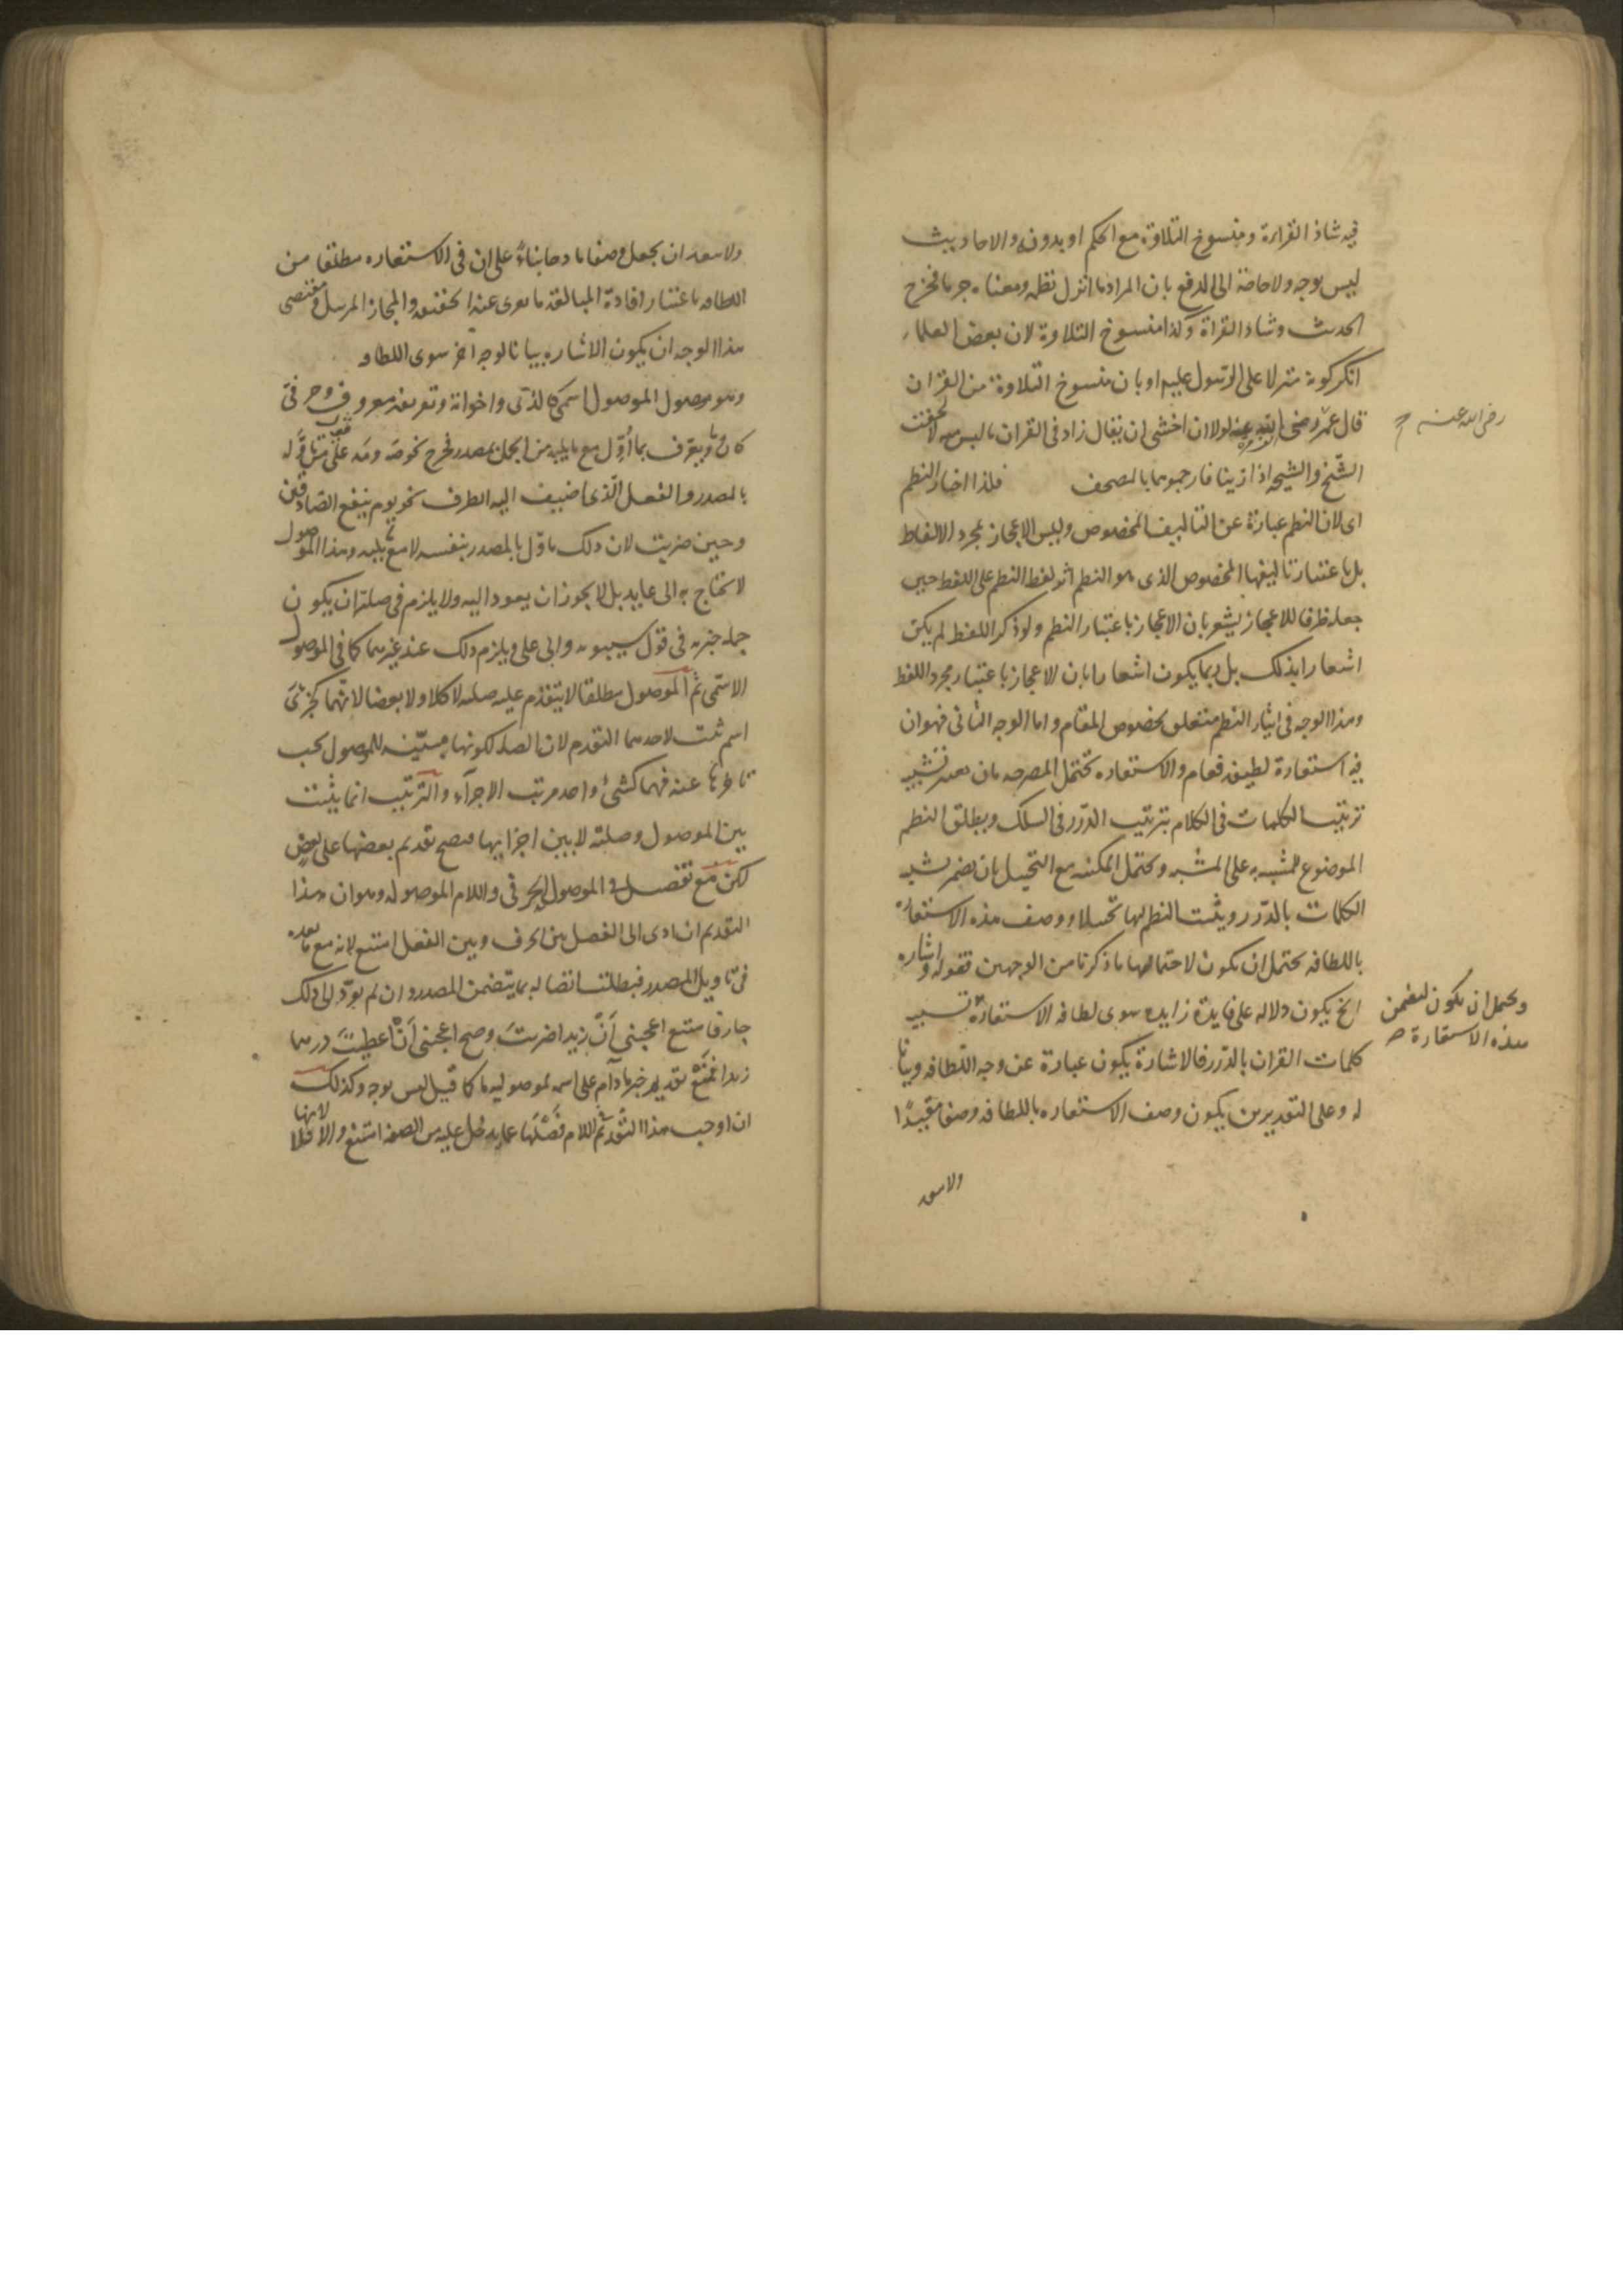 فيه شاذ القراءة ومنسوخ التلاوة مع الحكم او بدونه والاحاديث
ليس بوجه ولا حاجة الى الدفع بان المراد ما انزل نظمه ومعناه فخرج
الحديث وشاذ القراة وكذا منسوخ التلاوة لان بعض العلماء
انكر كونه منزلا على الرسول عليه او بان منسوخ التلاوة من القران
قال عمر رضى الله عنه لولا ان اخشى ان يقال زاد فى القران ما ليس منه لالحقت
رضى الله عنه
الشيخ والشيخة اذا زنيا فارجموهما بالمصحف فلذا اختار النظم
اى لان النظم عبارة عن التاليف المخصوص وليس الاعجاز بمجرد الالفاظ
بل باعتبار تاليفها المخصوص الذى هو النظم اثر لفظ النظم على اللفظ حين
جعله ظرفا للاعجاز يشعر بان الاعجاز باعتبار النظم ولو ذكر اللفظ لم يكن
اشعارا بذلك بل ربما يكون اشعارا بان الاعجاز باعتبار مجرد اللفظ
وهذا الوجه فى ايثار النظم متعلق بخصوص المقام واما الوجه الثانى فهو ان
فيه استعارة لطيفة فعام والاستعاره تحتمل المصرحه بان تشبيه
ترتيب الكلمات فى الكلام بترتيب الدرر فى السلك ويطلق النظم
الموضوع للمشبه به على المشبه ويحتمل المكنيه مع التخييل بان يضمر تشبيه
الكلمات بالدرر ويثبت النظم لها تخييلا ووصف هذه الاستعارة
باللطافه يحتمل ان تكون لاحتمالها ما ذكرنا من الوجهين فقوله واشاره
ويحتمل ان يكون لتضمن
هذه الاستعارة
الخ يكون دلاله على فايدة زايده سوى لطافه الاستعارة تشبيه
كلمات القران بالدرر فالاشارة يكون عبارة عن وجه اللطافه وبيانا
له وعلى التقديرين يكون وصف الاستعاره باللطافه وصفا مقيدا
ولا يبعد
ولا يبعد ان يجعل وصفا مادحا بناءً على ان فى الاستعاره مطلقا من
اللطافه باعتبار افادة المبالغة ما يعرى عنه الحقيقه والمجاز المرسل ومقتضى
هذا الوجه ان يكون الاشاره بيانا لوجه آخر سوى اللطافه
وهو موصول الموصول اسمى كالذى واخواته وتعريفه معروف وحرفى
كان ويعرف بما اُوِّل مع ما يليه من الجمل بمصدر فخرج نحو صَه ومَه على قول تاوله
بالمصدر والفعل الذى اضيف اليه الظرف نحو يوم ينفع الصادقين
وحين ضربت لان ذلك ماول بالمصدر بنفسه لا مع ما يليه وهذا الموصول
لا يحتاج الى عايد بل لا يجوز ان يعود اليه ولا يلزم فى صلته ان يكون
جمله خبريه فى قول سيبويه وابى على ويلزم ذلك عند غيرهما كما فى الموصول
الاسمى ثم الموصول مطلقا لا يتقدم عليه صلته لا كلا ولا بعضا لانهما كجزئى
اسم ثبت لاحدهما التقدم لان الصله لكونها مبيّنه للموصول يجب
تاخرها عنه فهما كشئ واحد مرتب الاجزآء والترتيب انما يثبت
بين الموصول وصلته لا بين اجزايها فيصح تقديم بعضها على بعض
لكن مع تفصيل فى الموصول الحرفى واللام الموصوله وهو ان هذا
التقديم ان ادى الى الفصل بين الحرف وبين الفعل امتنع لانه مع ما بعده
فى تاويل المصدر فيطلب اتصاله بما يتضمن المصدر وان لم يؤد الى ذلك
جاز فامتنع اعجبنى اَنْ زيدا ضربتَ وصح اعجبنى اَنْ اعطيتَ درهما
زيدا فمَنْع تقديم خبر مادام على اسمه لموصوليه ما كما قيل ليس بوجه وكذلك
ان اوجب هذا التقديم للام فَصْلَها عما يدخل عليه من الصفه امتنع والا فلا لانها